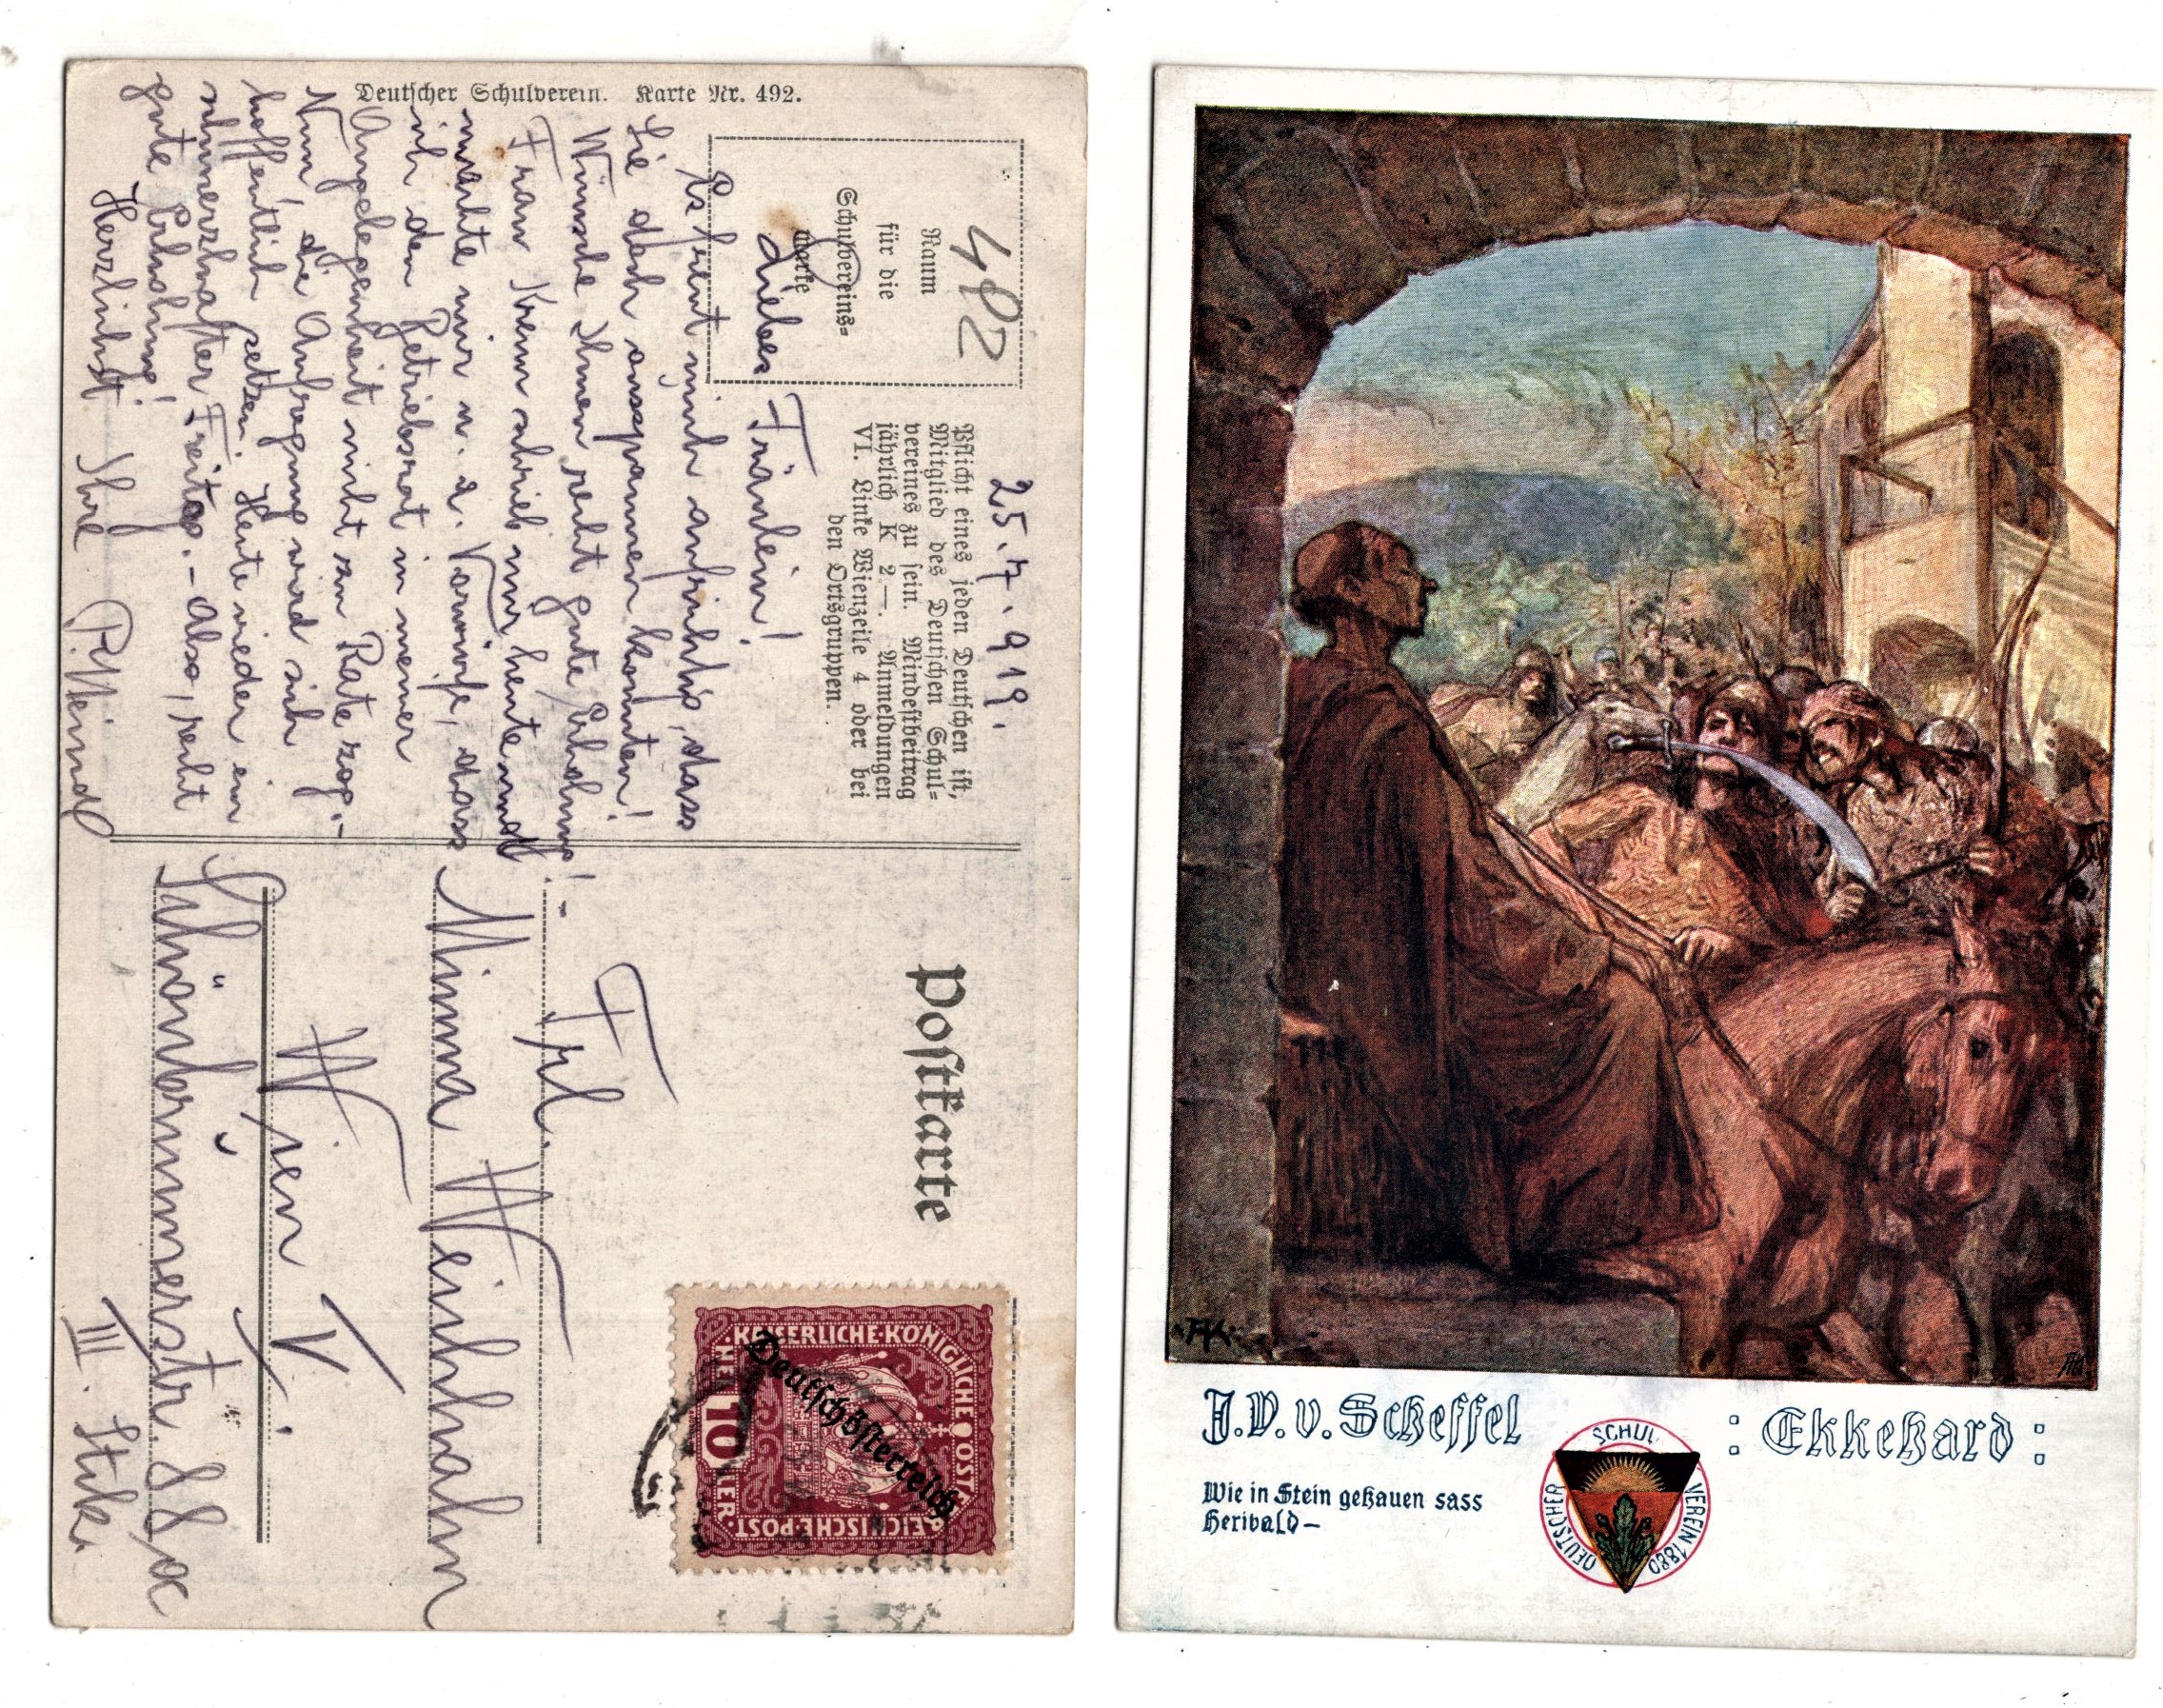 Deutscher Schulverein. Karte Nr. 492.
482
Raum
für die
Schulvereins=
marke
Pflicht eines jeden Deutschen ist,
Mitglied des Deutschen Schul=
vereines zu sein. Mindestbeitrag
jährlich K 2.—. Anmeldungen
VI. Linke Wienzeile 4 oder bei
den Ortsgruppen.
25.7.919.
Liebes Fräulein!
Es freut mich aufrichtig, dass
Sie doch ausspannen konnten!
Wünsche Ihnen recht gute Erholung!-
Frau Krem schrieb mir heute und
machte mir u. a. Vorwürfe, dass
ich den Betriebsrat in meiner
Angelegenheit nicht zu Rate zog.-
Nun, die Aufregung wird sich
hoffentlich setzen. Heute wieder ein
schmerzhafter Freitag.- Also, recht
gute Erholung!
Herzlichst Ihre P. Weindl
Postkarte
Frl.
Minna Weinhahn
Wien V.
Schönbrunnerstr. 88a
III. Stock.
KAISERLICHE KÖNIGLICHE ÖSTERREICHISCHE POST
10 HELLER
Deutschösterreich
J.V.v.Scheffel
: Ekkehard :
Wie in Stein gehauen sass
Heribald—
DEUTSCHER SCHULVEREIN 1880